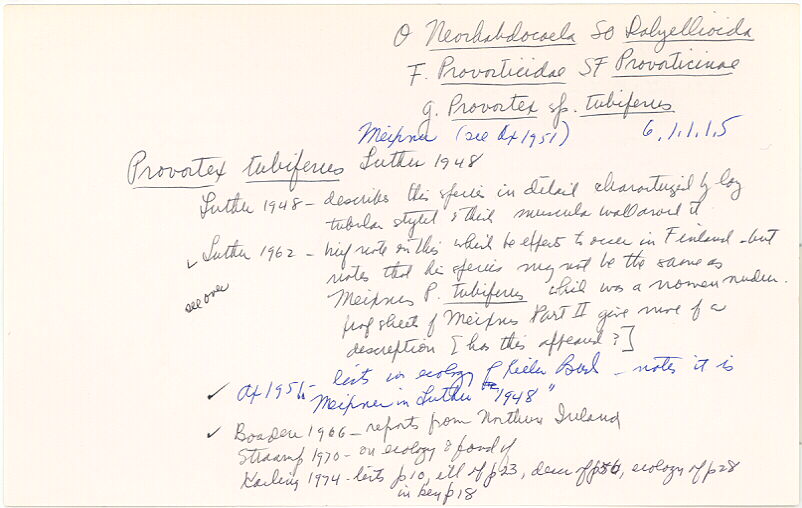 O Neorhabdocoela SO Dalyellioida
F. Provorticidae SF Provorticinae
g. Provortex sp. tubiferus
Meixner (see Ax 1951) 6,1,1,1,5
Provortex tubiferus Luther 1948
Luther 1948 - describes this species in detail characterized by long
tubular stylet & thick muscular wall around it
Luther 1962 - brief note on this which he to occur in Finland - but
see over
notes that his species may not be the same as
Meixners P. tubiferus which was a nomen nudum.
proof sheets of Meixner Part II give more of a
description [has this appeared?]
Ax 1951 - lists in ecology of Kieler Bucht - notes it is
Meixner in Luther "1948"
Boaden 1966 - reports from Northern Ireland
Straarup 1970 - on ecology & food of
Karling 1974 - lists p10, ill of p23, descr of p56, ecology of p28
in key p18